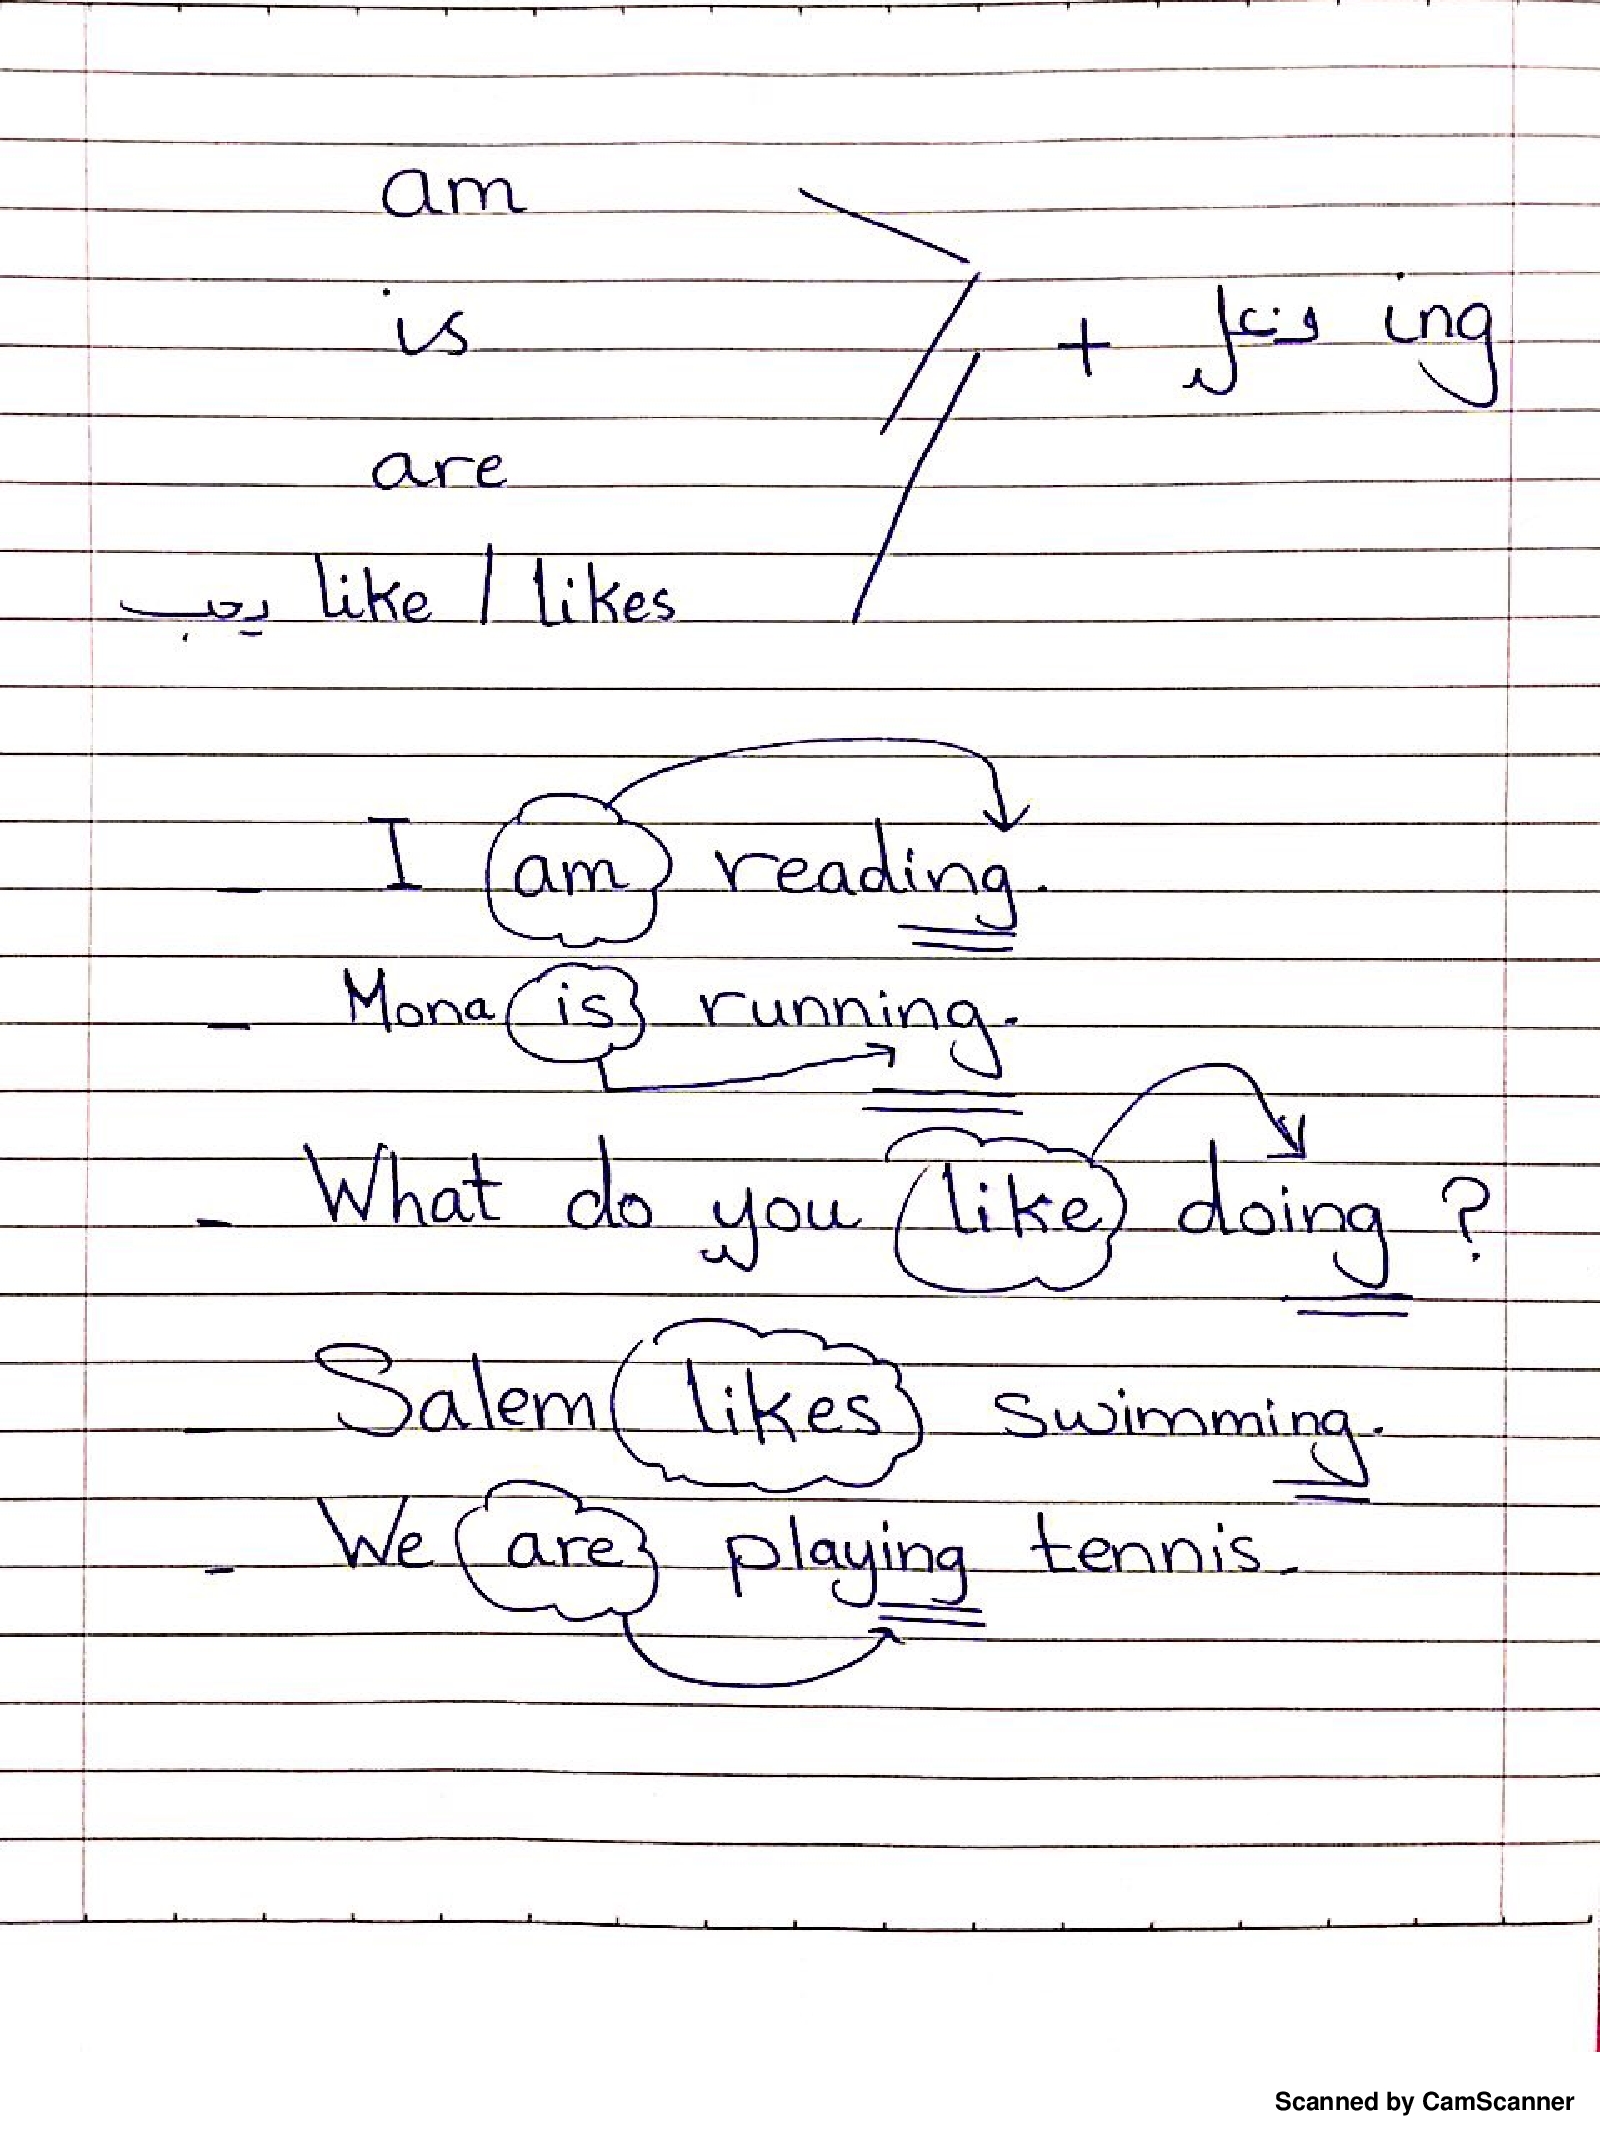 am
is
+ فعل ing
are
يحب like / likes
- I am reading.
- Mona is running.
- What do you like doing ?
- Salem likes swimming.
- We are playing tennis.
Scanned by CamScanner